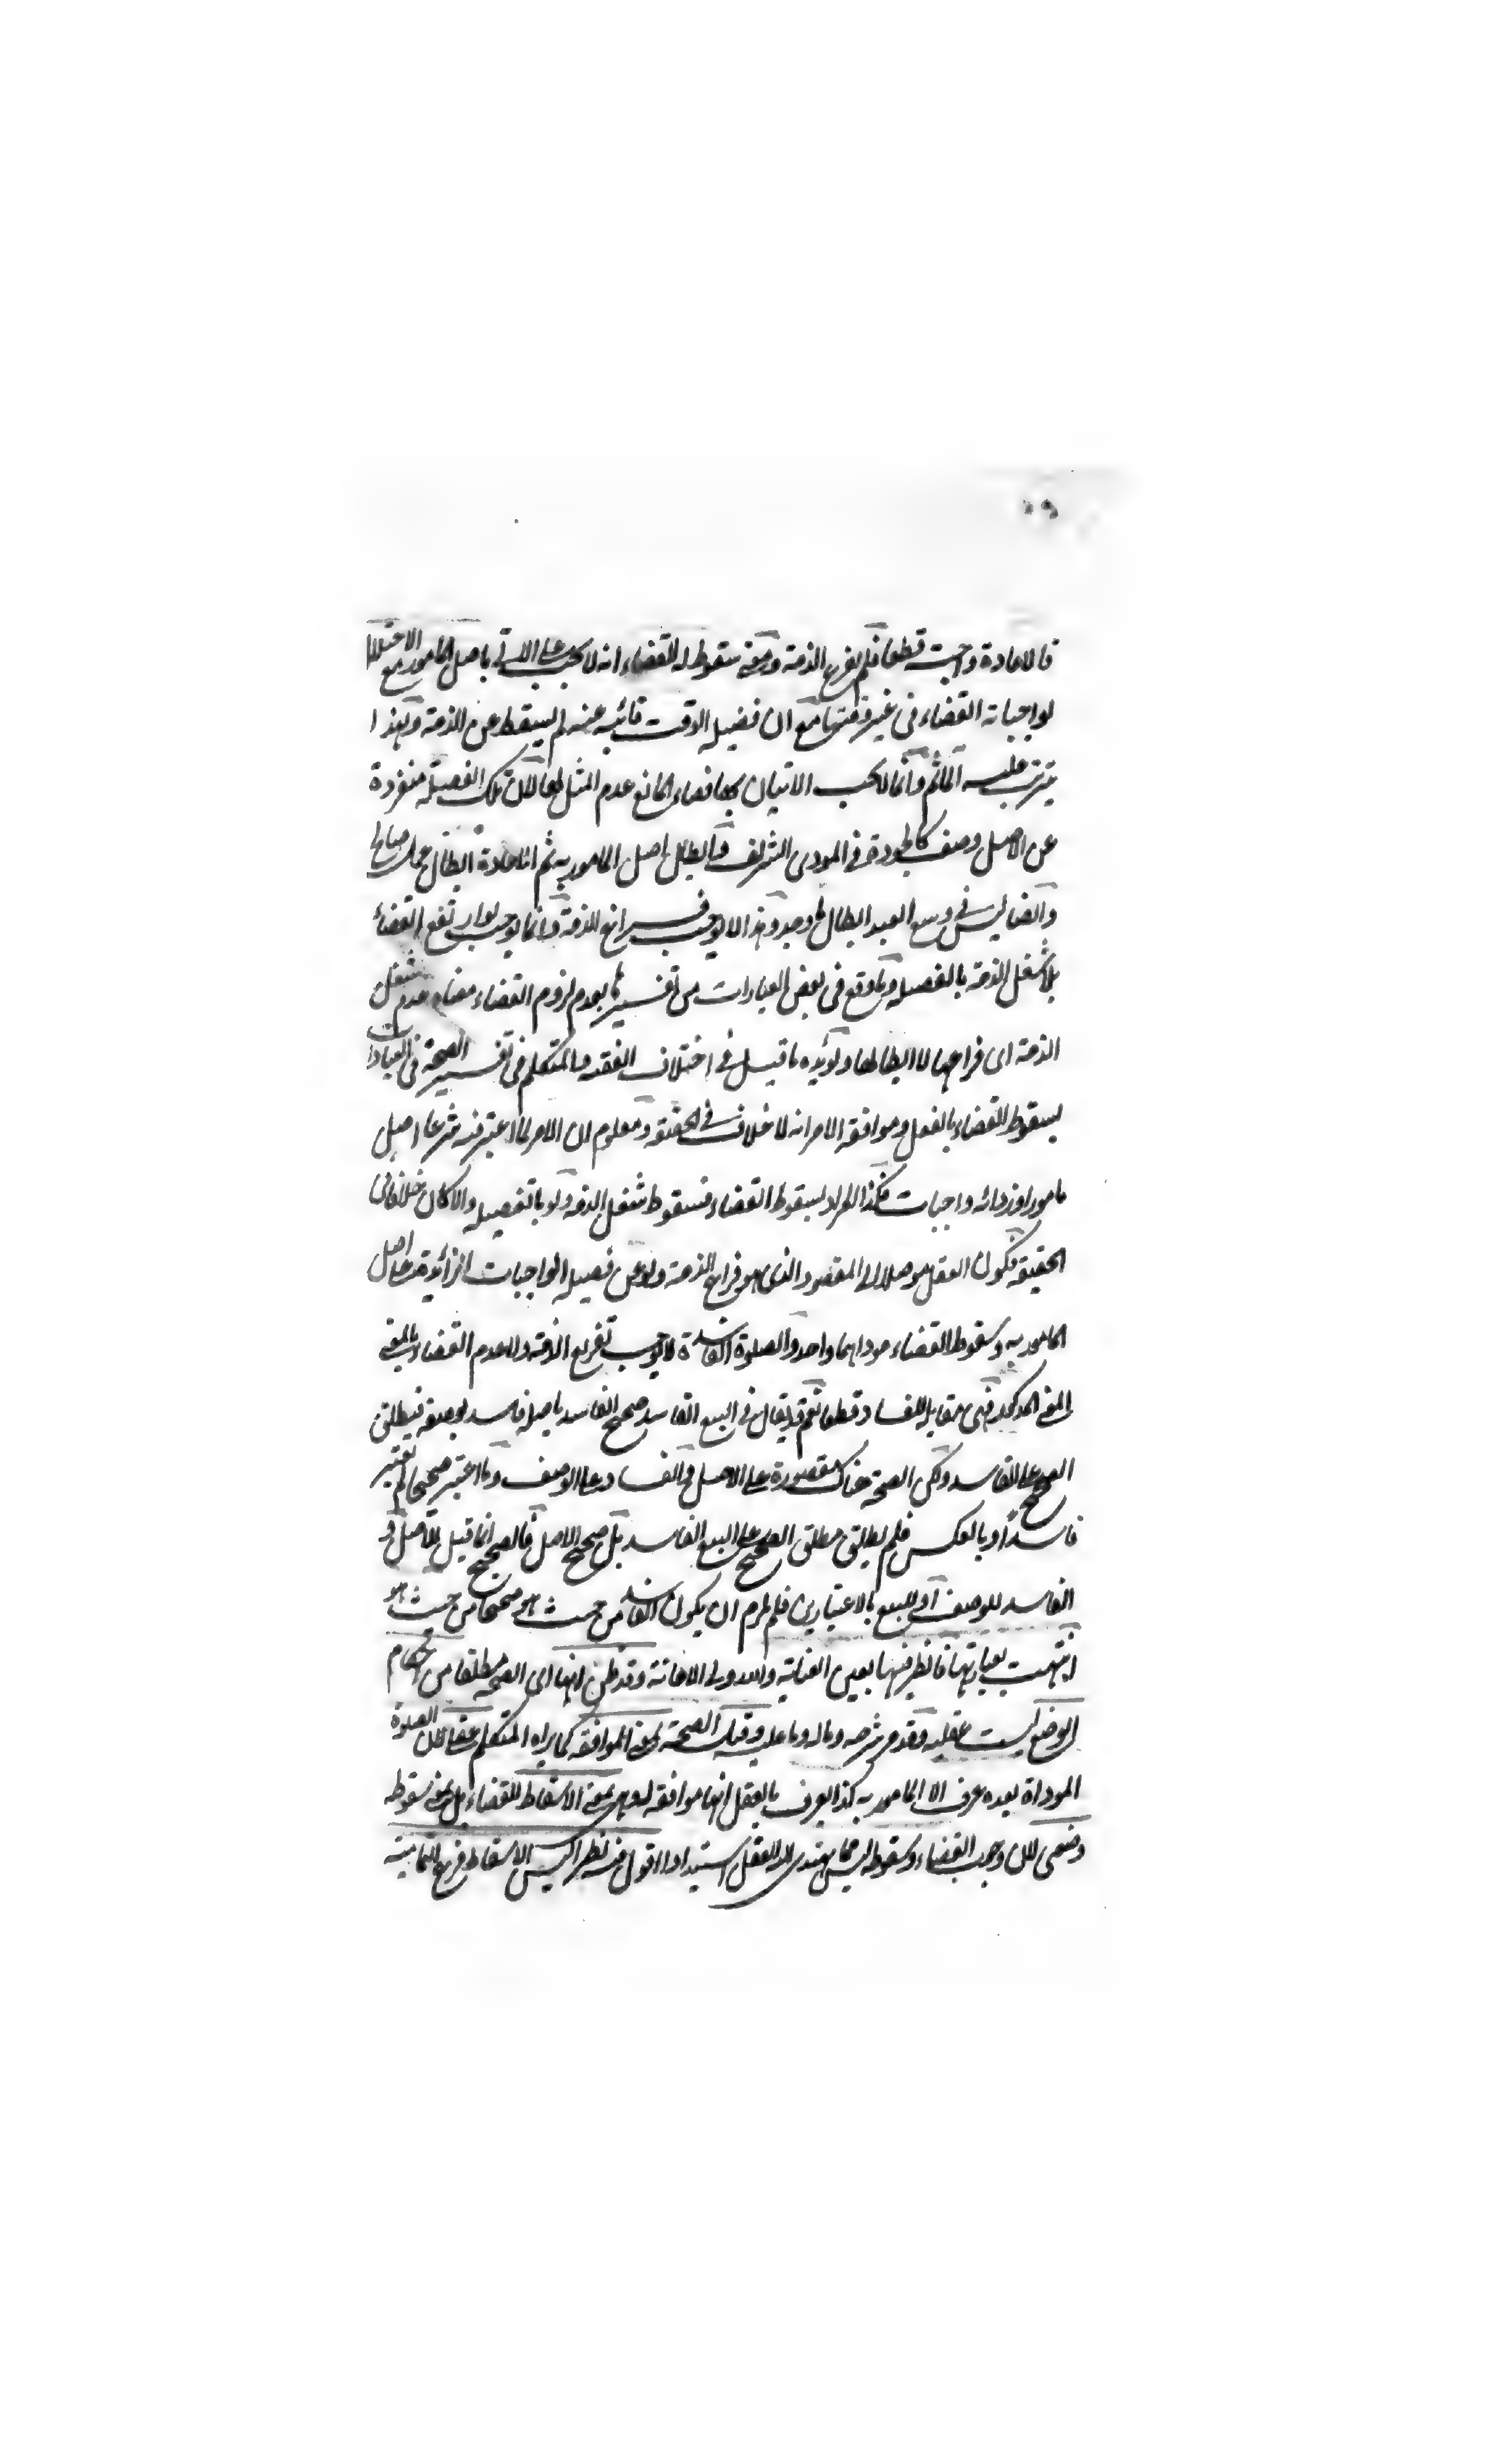 فالاعادة واجبة قطعا فلم يفرغ الذمة ومعنى سقوطه للقضاء انه لا يجب على الاتي باصل المامور مع الاختلال
لواجباته القضاء في غير وقتها مع ان فضيلة الوقت فائتة عنه لم يسقط عن الذمة ولهذا
يترتب عليه المأثم وانما لا يجب الاتيان بها قضاء لمانع عدم المثل لها لان تلك الفضيلة منفردة
عن الاصل وصف كالجودة في المودى الشريف وابطال اصل المامور به ثم اعادة ابطال عمل صالح
وايضا ليس في وسع العبد ابطال ما وجد وهذا لا يوجب فراغ الذمة وانما يوجب لو ارتفع القضاء
بلا شغل الذمة بالفضيلة وما وقع في بعض العبارات من تفسيرها بعدم لزوم القضاء معناه عدم شغل
الذمة اى فراغها لا ابطالها ويؤيده ما قيل في اختلاف الفقه والمتكلم في تفسير الصحة في العبادات
بسقوط القضاء بالفعل وموافقة الامر انه لا خلاف في الحقيقة ومعلوم ان الامر لما اعتبر فيه شرعا اصل
مامور او زوائد واجبات فكذا المراد بسقوط القضاء فسقوط شغل الذمة ولو بالفضيلة والا كان خلافا في
الحقيقة فكون الفعل موصلا الى المقصود الذى هو فراغ الذمة ولو عن فضيلة الواجبات الزائدة على اصل
المامور به وسقوط القضاء موداهما واحد والصلوة الفاسدة لا يوجب تفريغ الذمة ولا عدم القضاء بالمعنى
المعنى المذكور فهى مقابلة للفساد قطعا نعم قد يقال في البيع الفاسد صحيح الفاسد باصله فاسد بوصفه فيطلق
الصحيح على الفاسد ولكن الصحة هناك مقصورة على الاصل والفساد على الوصف وما اعتبر صحيحا لم يعتبر
فاسدا وبالعكس فلم يطلق مطلق الصحيح على البيع الفاسد بل صحيح الاصل فالصحيح انما قيل للاصل و
الفاسد للوصف او للبيع بالاعتبارين فلم يلزم ان يكون الفاسد من حيث هو صحيحا من حيث هو
انتهت بعبارتها فانظر فيها بعين العناية والله ولى الاعانة وقد ظن انها اى الصحة مطلقا من احكام
الوضع ليست عقلية وقد مر شرحه وماله وما عليه وقيل الصحة بمعنى الموافقة كما يراه المتكلم عقلى لان الصلوة
الموداة بعده عرف ان المامور به كذا يعرف بالعقل انها موافقة له وهى بمعنى الاسقاط للقضاء بل بمعنى سقوطه
وضعى لان وجوب القضاء وسقوطه ليس مما يهتدى اليه العقل استبدادا اقول فيه نظر اليس الاسقاط فرع التمامية